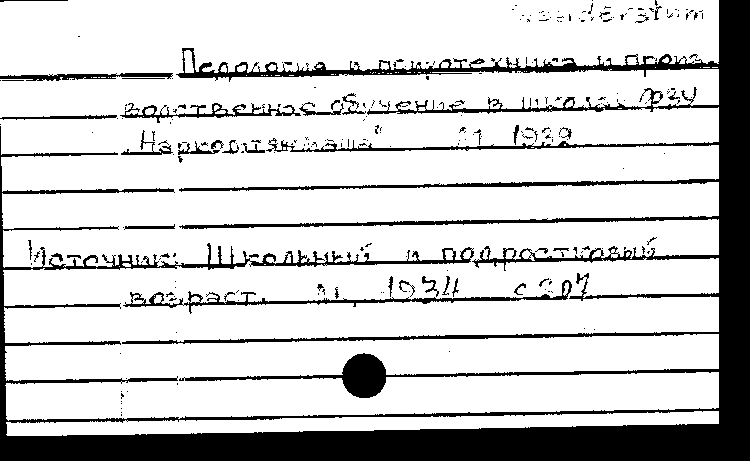 Desideratum
Педология и психотехника и произ-
водственное обучение в школах ФЗУ
„Наркомтяжмаша" М. 1932
Источник: Школьный и подростковый
возраст. М., 1934 с 207